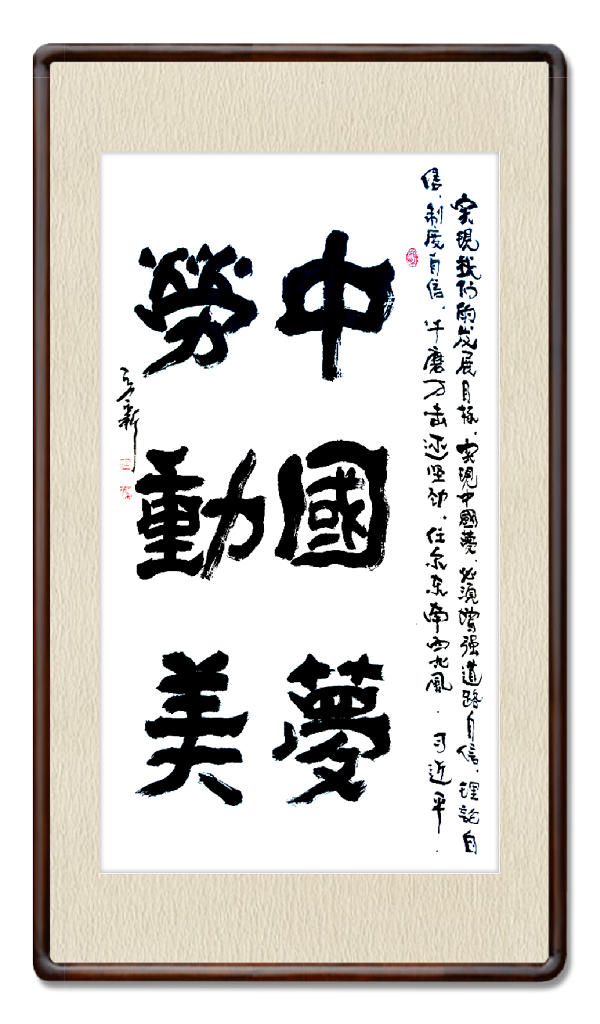 实現我们的发展目标，实現中國夢，必须增强道路自信，理論自
信，制度自信，千磨万击还坚劲，任尔东南西北風．习近平．
中國夢
勞動美